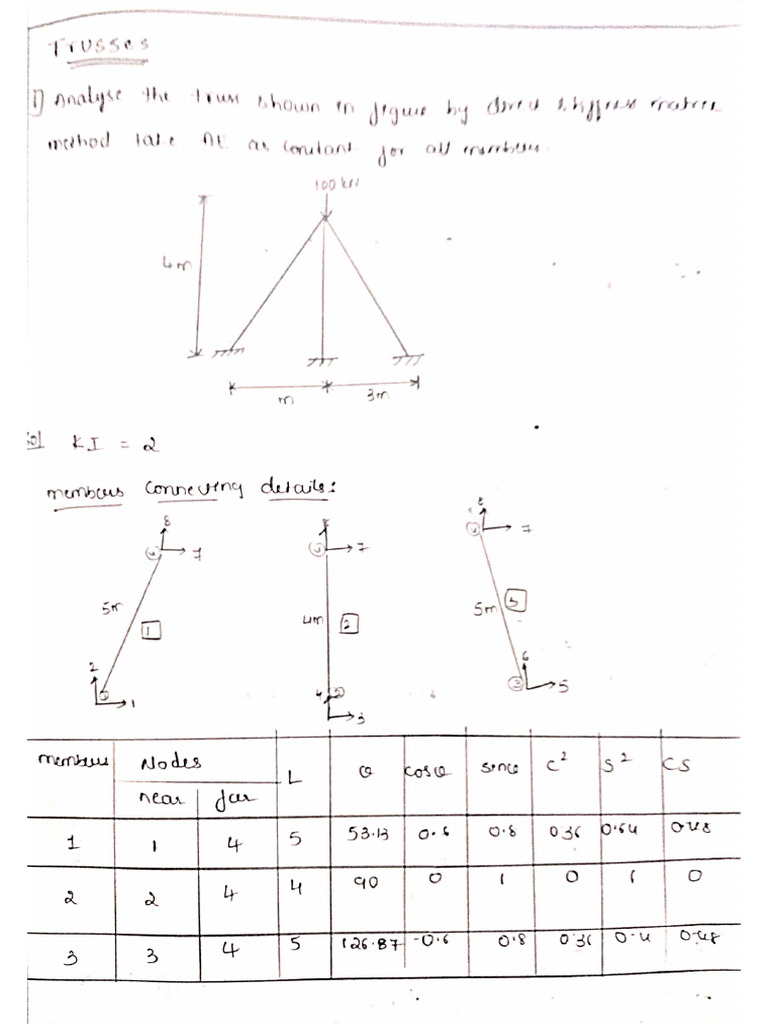 Trusses
1] Analyse the truss shown in figure by direct stiffness matrix
method take AE as constant for all members.
100 kN
4m
m 3m
Sol KI = 2
members connecting details:
8 7 5m 1 2 1
7 4m 2 4 2 3
8 7 5m 3 6 3 5
members Nodes L θ cosθ sinθ C² S² CS
near far
1 1 4 5 53.13 0.6 0.8 0.36 0.64 0.48
2 2 4 4 90 0 1 0 1 0
3 3 4 5 126.87 -0.6 0.8 0.36 0.48